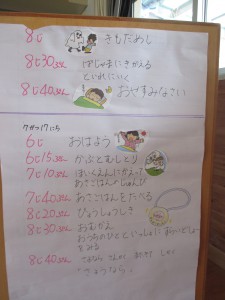 8じ きもだめし
8じ30ぷん ぱじゃまにきがえる
といれにいく
8じ40ぷん おやすみなさい
7がつ17にち
6じ おはよう
6じ15ふん かぶとむしとり
7じ10ぷん ほいくえんにかえって
あさごはんのじゅんび
7じ40ぷん あさごはんをたべる
8じ20ぷん ひょうしょうしき
8じ30ぷん おむかえ
おうちのひとといっしょに
をみる
8じ40ぷん
さようなら